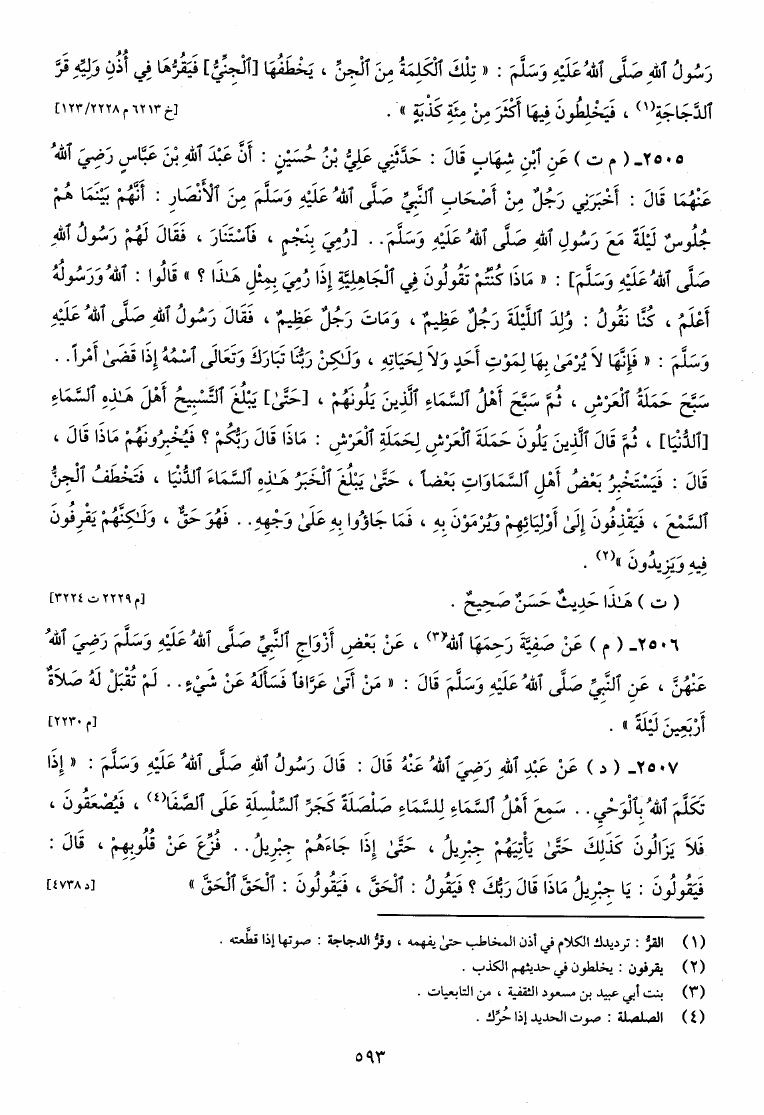 رَسُولُ ٱللهِ صَلَّى ٱللهُ عَلَيْهِ وَسَلَّمَ : « تِلْكَ ٱلْكَلِمَةُ مِنَ ٱلْجِنِّ ، يَخْطَفُهَا [ٱلْجِنِّيُّ] فَيَقُرُّهَا فِي أُذُنِ وَلِيِّهِ قَرَّ
ٱلدَّجَاجَةِ(١) ، فَيَخْلِطُونَ فِيهَا أَكْثَرَ مِنْ مِئَةِ كَذْبَةٍ » . [خ ٦٢١٣ م ١٢٣/٢٢٢٨]
٢٥٠٥ـ ( م ت ) عَنِ ٱبْنِ شِهَابٍ قَالَ : حَدَّثَنِي عَلِيُّ بْنُ حُسَيْنٍ : أَنَّ عَبْدَ ٱللهِ بْنَ عَبَّاسٍ رَضِيَ ٱللهُ
عَنْهُمَا قَالَ : أَخْبَرَنِي رَجُلٌ مِنْ أَصْحَابِ ٱلنَّبِيِّ صَلَّى ٱللهُ عَلَيْهِ وَسَلَّمَ مِنَ ٱلْأَنْصَارِ : أَنَّهُمْ بَيْنَمَا هُمْ
جُلُوسٌ لَيْلَةً مَعَ رَسُولِ ٱللهِ صَلَّى ٱللهُ عَلَيْهِ وَسَلَّمَ.. [رُمِيَ بِنَجْمٍ ، فَٱسْتَنَارَ ، فَقَالَ لَهُمْ رَسُولُ ٱللهِ
صَلَّى ٱللهُ عَلَيْهِ وَسَلَّمَ] : « مَاذَا كُنْتُمْ تَقُولُونَ فِي ٱلْجَاهِلِيَّةِ إِذَا رُمِيَ بِمِثْلِ هَـٰذَا ؟ » قَالُوا : ٱللهُ وَرَسُولُهُ
أَعْلَمُ ، كُنَّا نَقُولُ : وُلِدَ ٱللَّيْلَةَ رَجُلٌ عَظِيمٌ ، وَمَاتَ رَجُلٌ عَظِيمٌ ، فَقَالَ رَسُولُ ٱللهِ صَلَّى ٱللهُ عَلَيْهِ
وَسَلَّمَ : « فَإِنَّهَا لاَ يُرْمَىٰ بِهَا لِمَوْتِ أَحَدٍ وَلاَ لِحَيَاتِهِ ، وَلَـٰكِنْ رَبُّنَا تَبَارَكَ وَتَعَالَى ٱسْمُهُ إِذَا قَضَىٰ أَمْراً..
سَبَّحَ حَمَلَةُ ٱلْعَرْشِ ، ثُمَّ سَبَّحَ أَهْلُ ٱلسَّمَاءِ ٱلَّذِينَ يَلُونَهُمْ ، [حَتَّىٰ] يَبْلُغَ ٱلتَّسْبِيحُ أَهْلَ هَـٰذِهِ ٱلسَّمَاءِ
[ٱلدُّنْيَا] ، ثُمَّ قَالَ ٱلَّذِينَ يَلُونَ حَمَلَةَ ٱلْعَرْشِ لِحَمَلَةِ ٱلْعَرْشِ : مَاذَا قَالَ رَبُّكُمْ ؟ فَيُخْبِرُونَهُمْ مَاذَا قَالَ ،
قَالَ : فَيَسْتَخْبِرُ بَعْضُ أَهْلِ ٱلسَّمَاوَاتِ بَعْضاً ، حَتَّىٰ يَبْلُغَ ٱلْخَبَرُ هَـٰذِهِ ٱلسَّمَاءَ ٱلدُّنْيَا ، فَتَخْطَفُ ٱلْجِنُّ
ٱلسَّمْعَ ، فَيَقْذِفُونَ إِلَىٰ أَوْلِيَائِهِمْ وَيُرْمَوْنَ بِهِ ، فَمَا جَاؤُوا بِهِ عَلَىٰ وَجْهِهِ.. فَهُوَ حَقٌّ ، وَلَـٰكِنَّهُمْ يَقْرِفُونَ
فِيهِ وَيَزِيدُونَ »(٢) .
( ت ) هَـٰذَا حَدِيثٌ حَسَنٌ صَحِيحٌ . [م ٢٢٢٩ ت ٣٢٢٤]
٢٥٠٦ـ ( م ) عَنْ صَفِيَّةَ رَحِمَهَا ٱللهُ(٣) ، عَنْ بَعْضِ أَزْوَاجِ ٱلنَّبِيِّ صَلَّى ٱللهُ عَلَيْهِ وَسَلَّمَ رَضِيَ ٱللهُ
عَنْهُنَّ ، عَنِ ٱلنَّبِيِّ صَلَّى ٱللهُ عَلَيْهِ وَسَلَّمَ قَالَ : « مَنْ أَتَىٰ عَرَّافاً فَسَأَلَهُ عَنْ شَيْءٍ.. لَمْ تُقْبَلْ لَهُ صَلاَةٌ
أَرْبَعِينَ لَيْلَةً » . [م ٢٢٣٠]
٢٥٠٧ـ ( د ) عَنْ عَبْدِ ٱللهِ رَضِيَ ٱللهُ عَنْهُ قَالَ : قَالَ رَسُولُ ٱللهِ صَلَّى ٱللهُ عَلَيْهِ وَسَلَّمَ : « إِذَا
تَكَلَّمَ ٱللهُ بِٱلْوَحْيِ.. سَمِعَ أَهْلُ ٱلسَّمَاءِ لِلسَّمَاءِ صَلْصَلَةً كَجَرِّ ٱلسِّلْسِلَةِ عَلَى ٱلصَّفَا(٤) ، فَيُصْعَقُونَ ،
فَلاَ يَزَالُونَ كَذَلِكَ حَتَّىٰ يَأْتِيَهُمْ جِبْرِيلُ ، حَتَّىٰ إِذَا جَاءَهُمْ جِبْرِيلُ.. فُزِّعَ عَنْ قُلُوبِهِمْ ، قَالَ :
فَيَقُولُونَ : يَا جِبْرِيلُ مَاذَا قَالَ رَبُّكَ ؟ فَيَقُولُ : ٱلْحَقَّ ، فَيَقُولُونَ : ٱلْحَقَّ ٱلْحَقَّ » [د ٤٧٣٨]
(١) القرُّ : ترديدك الكلام في أذن المخاطب حتىٰ يفهمه ، وقرُّ الدجاجة : صوتها إذا قطَّعته .
(٢) يقرفون : يخلطون في حديثهم الكذب .
(٣) بنت أبي عبيد بن مسعود الثقفية ، من التابعيات .
(٤) الصلصلة : صوت الحديد إذا حُرِّك .
٥٩٣